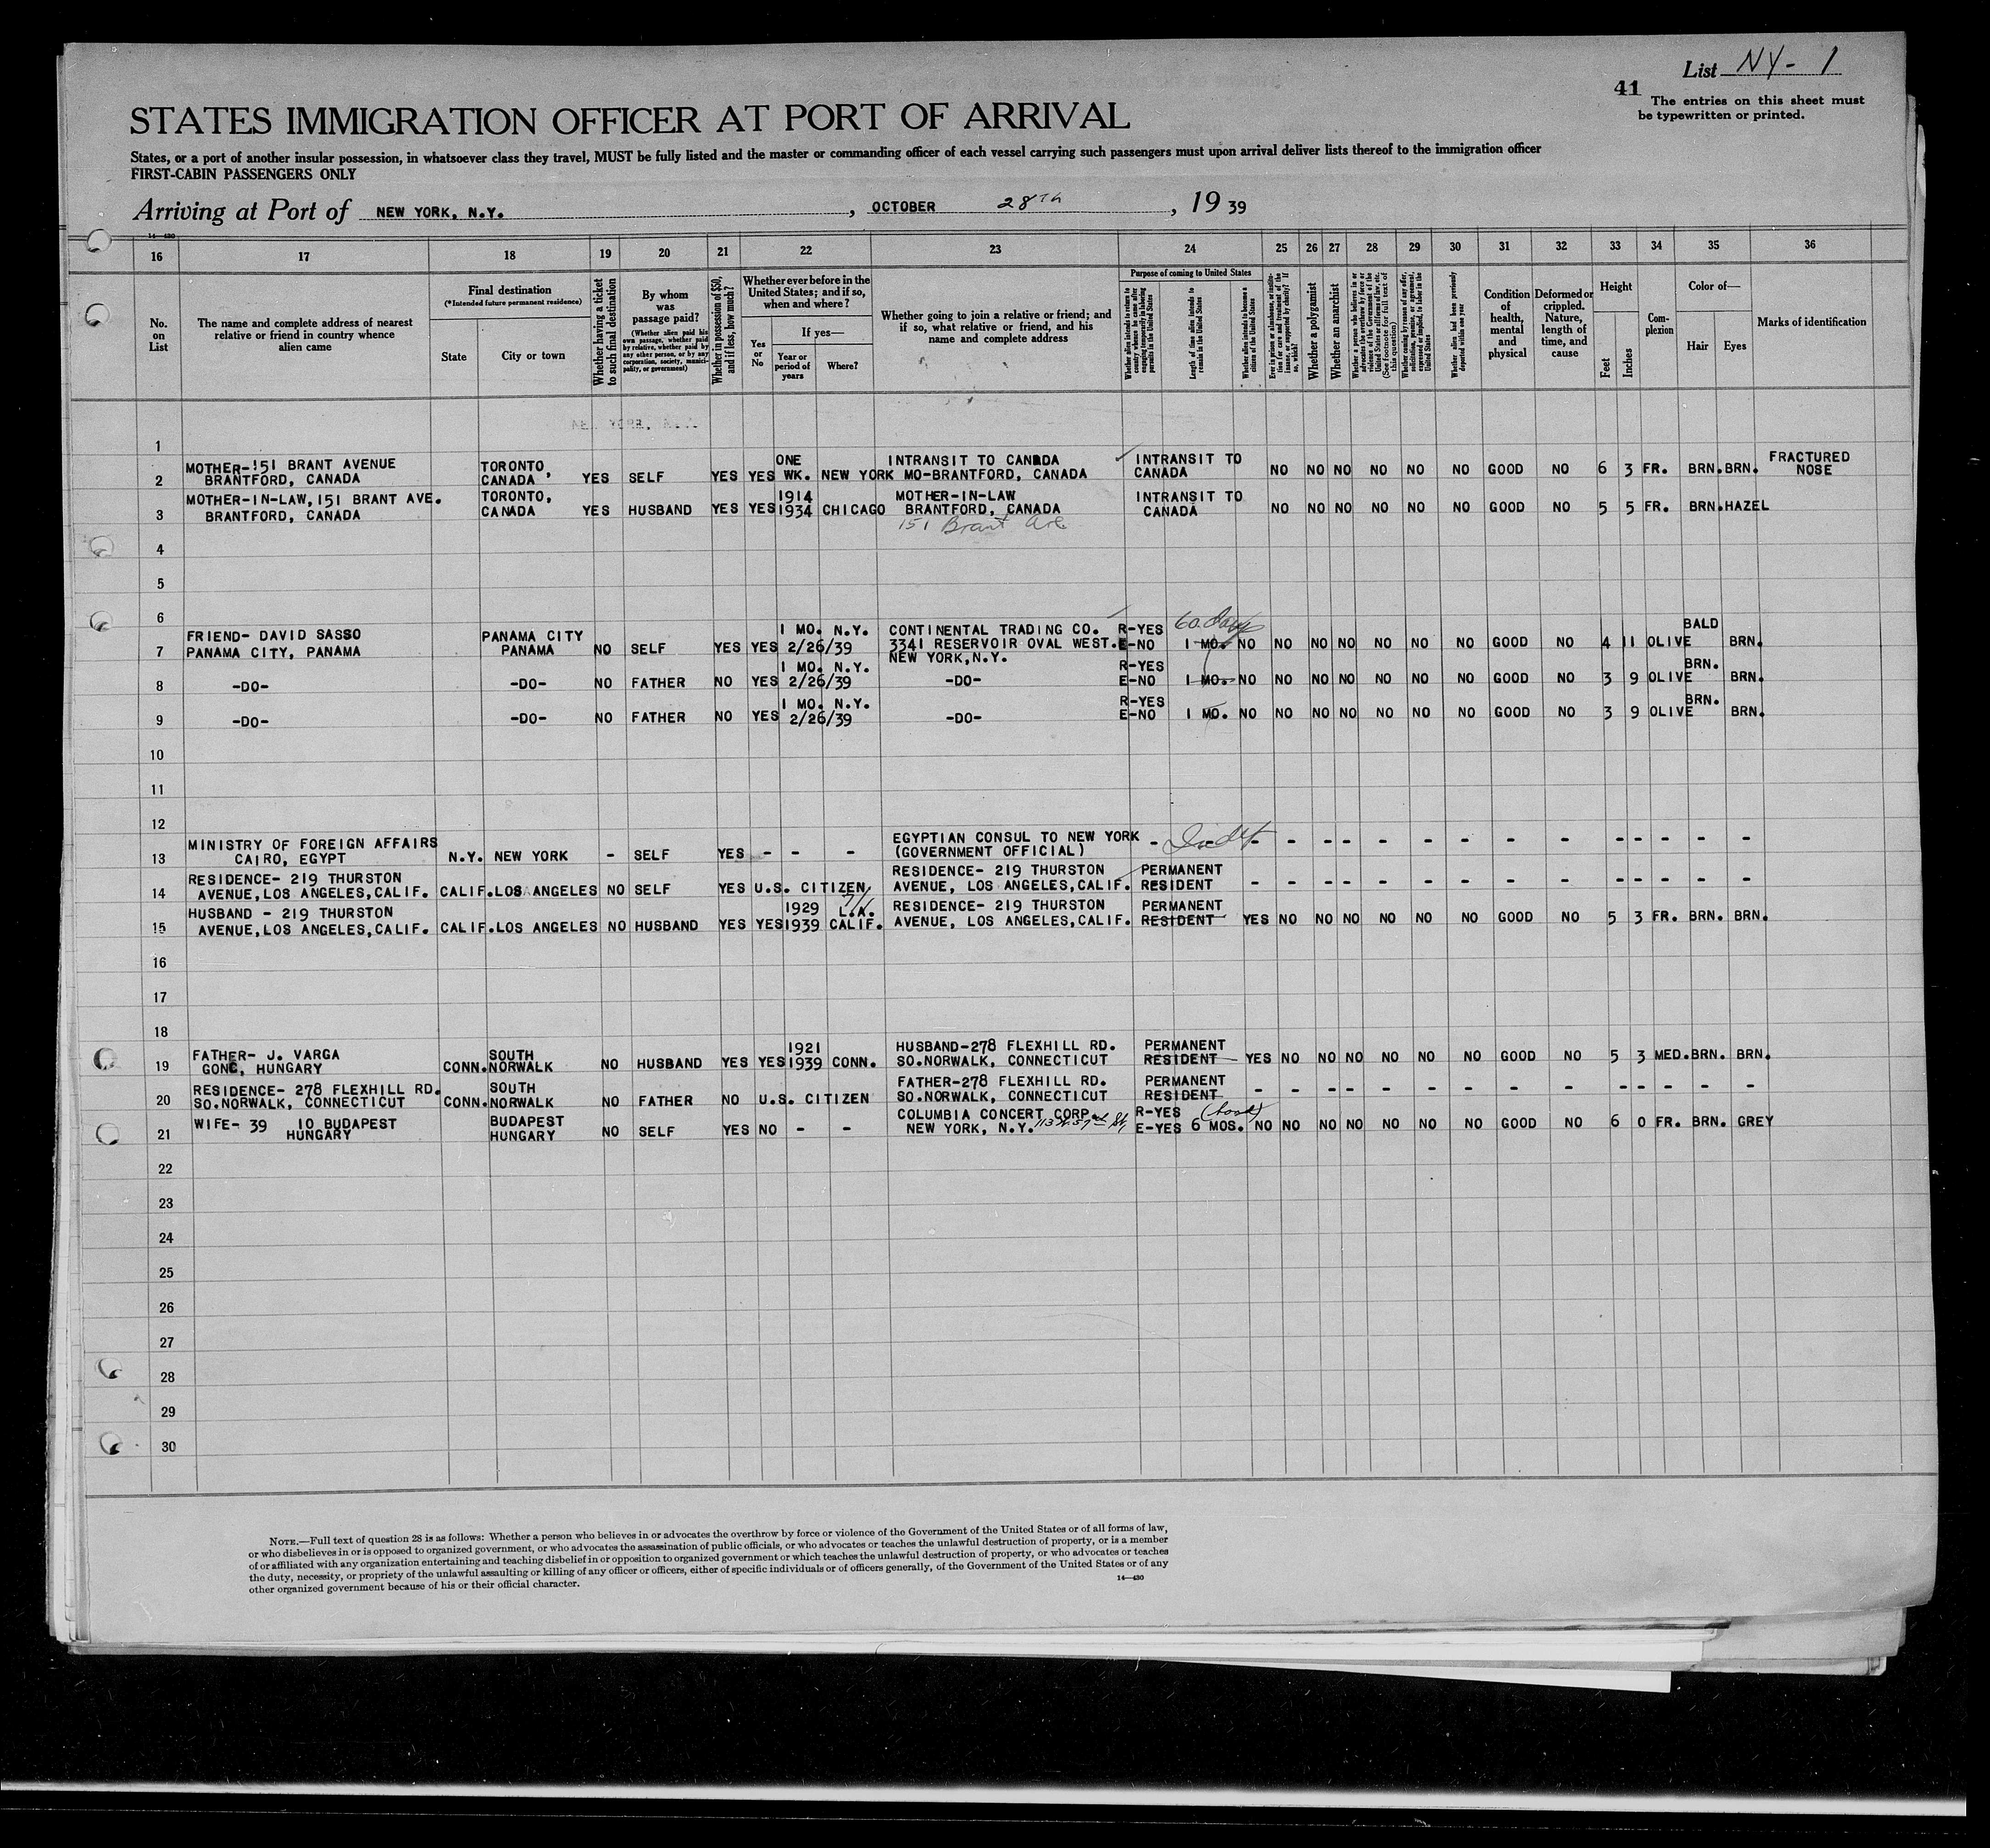 List NY- 1
41
The entries on this sheet must
be typewritten or printed.
STATES IMMIGRATION OFFICER AT PORT OF ARRIVAL
States, or a port of another insular possession, in whatsoever class they travel, MUST be fully listed and the master or commanding officer of each vessel carrying such passengers must upon arrival deliver lists thereof to the immigration officer
FIRST-CABIN PASSENGERS ONLY
Arriving at Port of NEW YORK, N.Y. , OCTOBER 28TH , 19 39
14—430
16 17 18 19 20 21 22 23 24 25 26 27 28 29 30 31 32 33 34 35 36
No. on List
The name and complete address of nearest relative or friend in country whence alien came
Final destination
(*Intended future permanent residence)
State
City or town
Whether having a ticket to such final destination
By whom was passage paid?
(Whether alien paid his own passage, whether paid by relative, whether paid by any other person, or by any corporation, society, municipality, or government)
Whether in possession of $50, and if less, how much?
Whether ever before in the United States; and if so, when and where?
Yes or No
If yes—
Year or period of years
Where?
Whether going to join a relative or friend; and if so, what relative or friend, and his name and complete address
Purpose of coming to United States
Whether alien intends to return to country whence he came after engaging temporarily in laboring pursuits in the United States
Length of time alien intends to remain in the United States
Whether alien intends to become a citizen of the United States
Ever in prison or almshouse, or institution for care and treatment of the insane, or supported by charity? If so, which?
Whether a polygamist
Whether an anarchist
Whether a person who believes in or advocates the overthrow by force or violence of the Government of the United States or all forms of law, etc. (See footnote for full text of this question)
Whether coming by reason of any offer, solicitation, promise, or agreement, expressed or implied, to labor in the United States
Whether alien had been previously deported within one year
Condition of health, mental and physical
Deformed or crippled. Nature, length of time, and cause
Height
Feet
Inches
Complexion
Color of—
Hair
Eyes
Marks of identification
NEW YORK, N.Y.
1
2 MOTHER-151 BRANT AVENUE BRANTFORD, CANADA TORONTO, CANADA YES SELF YES YES ONE WK. NEW YORK INTRANSIT TO CANADA MO-BRANTFORD, CANADA INTRANSIT TO CANADA NO NO NO NO NO NO GOOD NO 6 3 FR. BRN. BRN. FRACTURED NOSE
3 MOTHER-IN-LAW, 151 BRANT AVE. BRANTFORD, CANADA TORONTO, CANADA YES HUSBAND YES YES 1914 1934 CHICAGO MOTHER-IN-LAW BRANTFORD, CANADA 151 Brant Ave INTRANSIT TO CANADA NO NO NO NO NO NO GOOD NO 5 5 FR. BRN. HAZEL
4
5
6
7 FRIEND- DAVID SASSO PANAMA CITY, PANAMA PANAMA CITY PANAMA NO SELF YES YES 1 MO. N.Y. 2/26/39 CONTINENTAL TRADING CO. 3341 RESERVOIR OVAL WEST. NEW YORK, N.Y. R-YES E-NO 60 days 1 MO. NO NO NO NO NO NO NO GOOD NO 4 11 OLIVE BALD BRN.
8 -DO- -DO- NO FATHER NO YES 1 MO. N.Y. 2/26/39 -DO- R-YES E-NO 1 MO. NO NO NO NO NO NO NO GOOD NO 3 9 OLIVE BRN. BRN.
9 -DO- -DO- NO FATHER NO YES 1 MO. N.Y. 2/26/39 -DO- R-YES E-NO 1 MO. NO NO NO NO NO NO NO GOOD NO 3 9 OLIVE BRN. BRN.
10
11
12
13 MINISTRY OF FOREIGN AFFAIRS CAIRO, EGYPT N.Y. NEW YORK - SELF YES - - - EGYPTIAN CONSUL TO NEW YORK (GOVERNMENT OFFICIAL) - Indef - - - - - - - - - - - - - -
14 RESIDENCE- 219 THURSTON AVENUE, LOS ANGELES, CALIF. CALIF. LOS ANGELES NO SELF YES U.S. CITIZEN RESIDENCE- 219 THURSTON AVENUE, LOS ANGELES, CALIF. PERMANENT RESIDENT - - - - - - - - - - - - - -
15 HUSBAND - 219 THURSTON AVENUE, LOS ANGELES, CALIF. CALIF. LOS ANGELES NO HUSBAND YES YES 1929 1939 L.A. CALIF. RESIDENCE- 219 THURSTON AVENUE, LOS ANGELES, CALIF. PERMANENT RESIDENT YES NO NO NO NO NO NO GOOD NO 5 3 FR. BRN. BRN.
16
17
18
19 FATHER- J. VARGA GONC, HUNGARY CONN. SOUTH NORWALK NO HUSBAND YES YES 1921 1939 CONN. HUSBAND-278 FLEXHILL RD. SO.NORWALK, CONNECTICUT PERMANENT RESIDENT YES NO NO NO NO NO NO GOOD NO 5 3 MED. BRN. BRN.
20 RESIDENCE- 278 FLEXHILL RD. SO.NORWALK, CONNECTICUT CONN. SOUTH NORWALK NO FATHER NO U.S. CITIZEN FATHER-278 FLEXHILL RD. SO.NORWALK, CONNECTICUT PERMANENT RESIDENT - - - - - - - - - - - - - -
21 WIFE- 39 10 BUDAPEST HUNGARY BUDAPEST HUNGARY NO SELF YES NO - - COLUMBIA CONCERT CORP. NEW YORK, N.Y. 113 W. 57th St, R-YES E-YES 6 MOS. NO NO NO NO NO NO NO GOOD NO 6 0 FR. BRN. GREY
22
23
24
25
26
27
28
29
30
NOTE.—Full text of question 28 is as follows: Whether a person who believes in or advocates the overthrow by force or violence of the Government of the United States or of all forms of law,
or who disbelieves in or is opposed to organized government, or who advocates the assassination of public officials, or who advocates or teaches the unlawful destruction of property, or is a member
of or affiliated with any organization entertaining and teaching disbelief in or opposition to organized government or which teaches the unlawful destruction of property, or who advocates or teaches
the duty, necessity, or propriety of the unlawful assaulting or killing of any officer or officers, either of specific individuals or of officers generally, of the Government of the United States or of any
other organized government because of his or their official character.
14—430